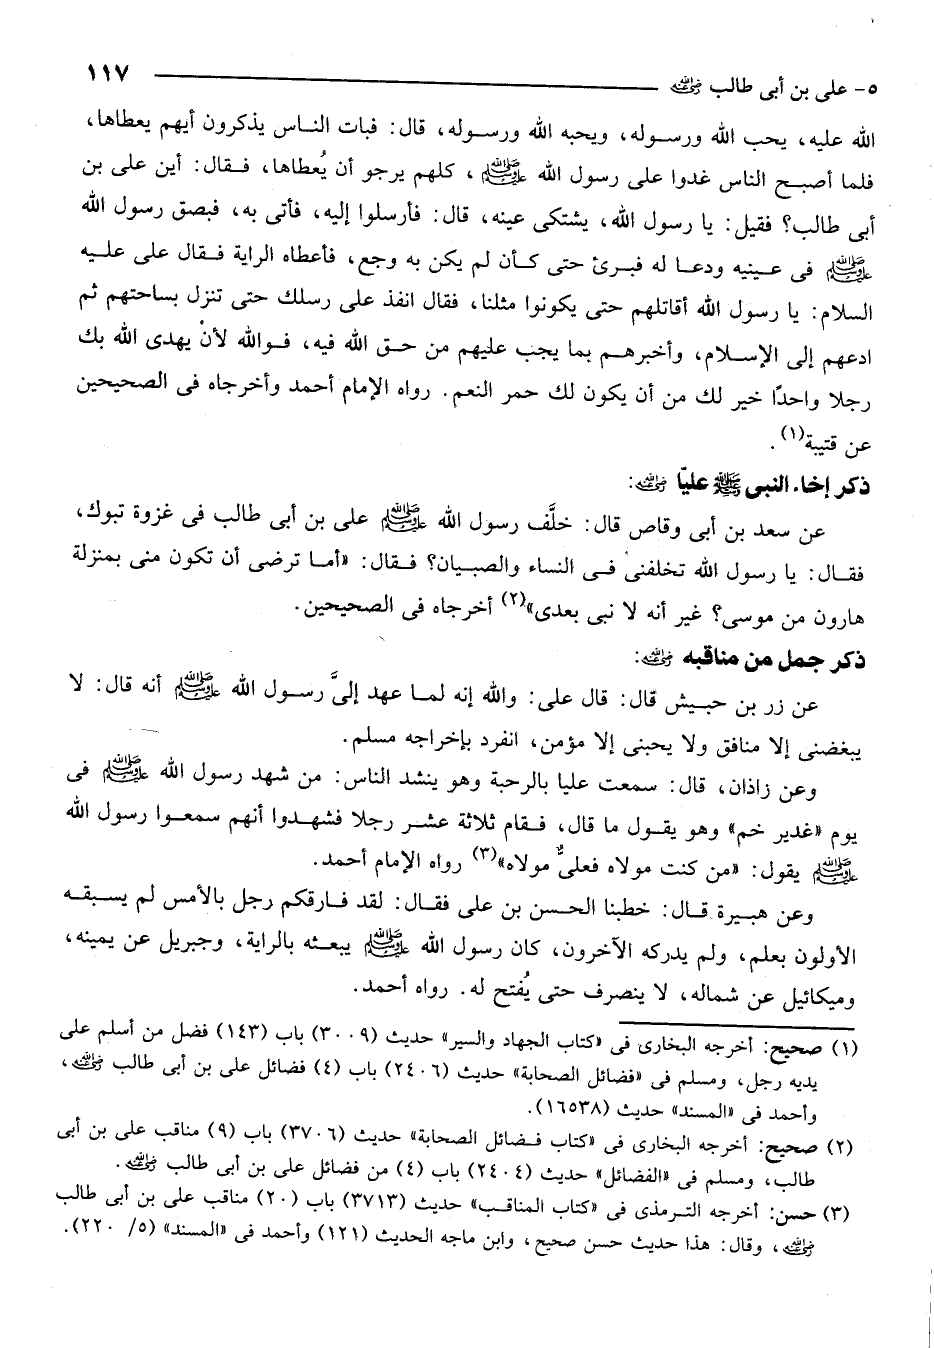 ٥- على بن أبى طالب رضي الله عنه ١١٧
الله عليه، يحب الله ورسوله، ويحبه الله ورسوله، قال: فبات الناس يذكرون أيهم يعطاها،
فلما أصبح الناس غدوا على رسول الله ﷺ، كلهم يرجو أن يُعطاها، فقال: أين على بن
أبى طالب؟ فقيل: يا رسول الله، يشتكى عينه، قال: فأرسلوا إليه، فأتى به، فبصق رسول الله
ﷺ فى عينيه ودعا له فبرئ حتى كأن لم يكن به وجع، فأعطاه الراية فقال على عليه
السلام: يا رسول الله أقاتلهم حتى يكونوا مثلنا، فقال انفذ على رسلك حتى تنزل بساحتهم ثم
ادعهم إلى الإسلام، وأخبرهم بما يجب عليهم من حق الله فيه، فوالله لأنْ يهدى الله بك
رجلا واحدًا خير لك من أن يكون لك حمر النعم. رواه الإمام أحمد وأخرجاه فى الصحيحين
عن قتيبة(١).
ذكر إخاء النبى ﷺ عليّا رضي الله عنه:
عن سعد بن أبى وقاص قال: خلَّف رسول الله ﷺ على بن أبى طالب فى غزوة تبوك،
فقال: يا رسول الله تخلفنى فى النساء والصبيان؟ فقال: «أما ترضى أن تكون منى بمنزلة
هارون من موسى؟ غير أنه لا نبى بعدى»(٢) أخرجاه فى الصحيحين.
ذكر جمل من مناقبه رضي الله عنه:
عن زر بن حبيش قال: قال على: والله إنه لما عهد إلىَّ رسول الله ﷺ أنه قال: لا
يبغضنى إلا منافق ولا يحبنى إلا مؤمن، انفرد بإخراجه مسلم.
وعن زاذان، قال: سمعت عليا بالرحبة وهو ينشد الناس: من شهد رسول الله ﷺ فى
يوم «غدير خم» وهو يقول ما قال، فقام ثلاثة عشر رجلا فشهدوا أنهم سمعوا رسول الله
ﷺ يقول: «من كنت مولاه فعلىٌّ مولاه»(٣) رواه الإمام أحمد.
وعن هبيرة قال: خطبنا الحسن بن على فقال: لقد فارقكم رجل بالأمس لم يسبقه
الأولون بعلم، ولم يدركه الآخرون، كان رسول الله ﷺ يبعثه بالراية، وجبريل عن يمينه،
وميكائيل عن شماله، لا ينصرف حتى يُفتح له. رواه أحمد.
(١) صحيح: أخرجه البخارى فى «كتاب الجهاد والسير» حديث (٣٠٠٩) باب (١٤٣) فضل من أسلم على
يديه رجل، ومسلم فى «فضائل الصحابة» حديث (٢٤٠٦) باب (٤) فضائل على بن أبى طالب رضي الله عنه،
وأحمد فى «المسند» حديث (١٦٥٣٨).
(٢) صحيح: أخرجه البخارى فى «كتاب فضائل الصحابة» حديث (٣٧٠٦) باب (٩) مناقب على بن أبى
طالب، ومسلم فى «الفضائل» حديث (٢٤٠٤) باب (٤) من فضائل على بن أبى طالب رضي الله عنه.
(٣) حسن: أخرجه الترمذى فى «كتاب المناقب» حديث (٣٧١٣) باب (٢٠) مناقب على بن أبى طالب
رضي الله عنه، وقال: هذا حديث حسن صحيح، وابن ماجه الحديث (١٢١) وأحمد فى «المسند» (٥/ ٢٢٠).